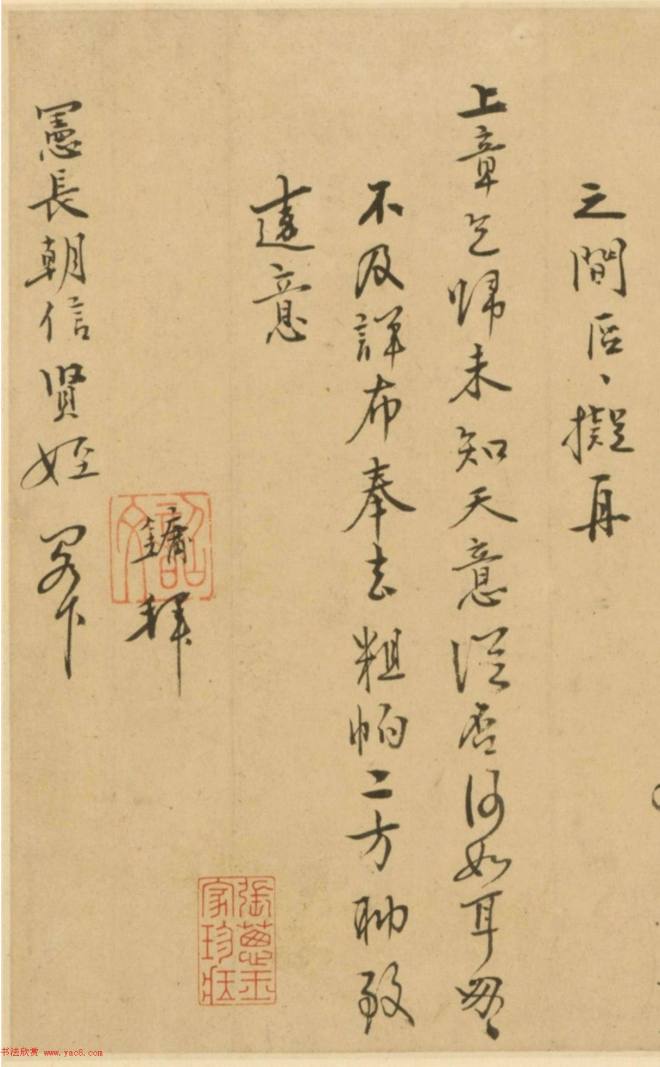 之間區々擬再
上章乞歸未知天意從否何如耳匆匆
不及詳布奉去粗帕二方聊致
遠意
鏞拜
憲長朝信賢姪 閣下
張蔥玉
家珍藏
书法欣赏 www.yac8.com